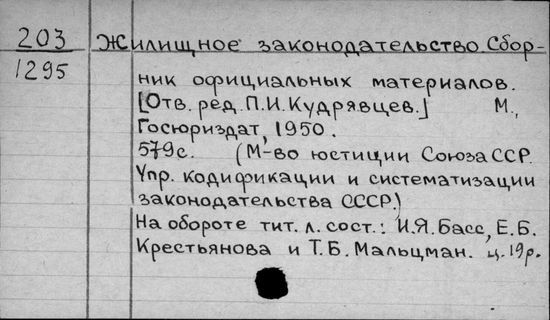 203 Жилищное законодательство Сбор-
1295
ник официальных материалов.
[Отв. ред. П.И. Кудрявцев.] М.,
Госюриздат, 1950.
579с. (М-во юстиции Союза ССР.
Упр. кодификации и систематизации
законодательства СССР.)
На обороте тит. л. сост.: И.Я. Басс, Е.Б.
Крестьянова и Т.Б. Мальцман. ц. 19р.